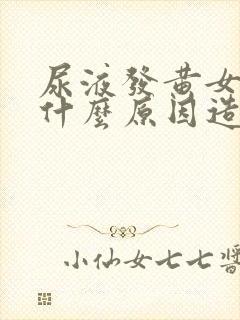 尿液發黃女
什麼原因造
小仙女七七醬